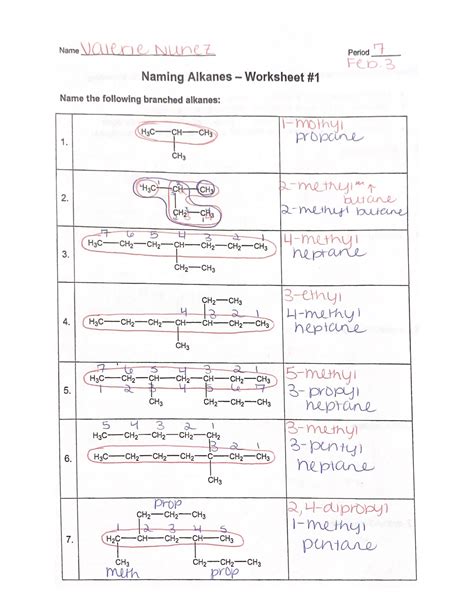 Name Valerie Nunez
Period 7
Feb. 3
Naming Alkanes – Worksheet #1
Name the following branched alkanes:
1.
H₃C—CH—CH₃
CH₃
1-methyl
propane
2.
H₃C—CH—CH₃
CH₂—CH₃
2-methyl
butane
2-methyl butane
3.
7 6 5 4 3 2 1
H₃C—CH₂—CH₂—CH—CH₂—CH₂—CH₃
CH₂—CH₃
4-methyl
heptane
4.
CH₂—CH₃
4 3 2 1
H₃C—CH₂—CH₂—CH—CH—CH₂—CH₃
CH₃
3-ethyl
4-methyl
heptane
5.
7 6 5 4 3 2 1
H₃C—CH₂—CH—CH₂—CH—CH₂—CH₃
1 2 3 4 5 6 7
CH₃
CH₂—CH₂—CH₃
5-methyl
3-propyl
heptane
6.
5 4 3 2 1
H₃C—CH₂—CH₂—CH₂—CH₂
3 2 1
H₃C—CH₂—CH₂—CH₂—C—CH₂—CH₃
CH₃
3-methyl
3-pentyl
heptane
7.
prop
CH₂—CH₂—CH₃
1 2 3 4 5
H₂C—CH—CH₂—CH—CH₃
CH₃
CH₂—CH₂—CH₃
meth
prop
2,4-dipropyl
1-methyl
pentane